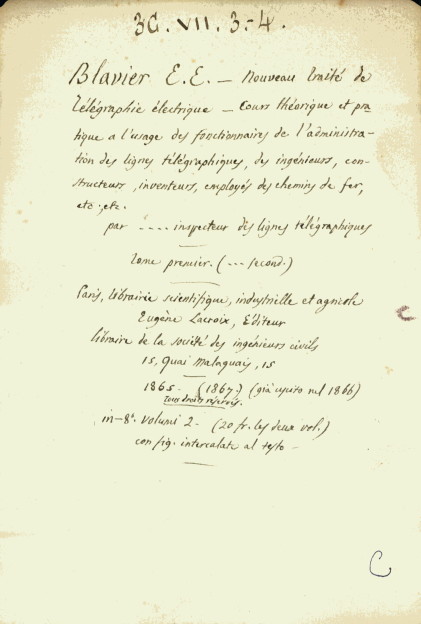 3G. VII. 3.-4.
Blavier E. E. — Nouveau traité de
télégraphie électrique — Cours théorique et pra
tique a l'usage des fonctionnaires de l'administra-
tion des lignes télégraphiques, des ingénieurs, con-
structeurs, inventeurs, employés des chemins de fer,
etc., etc.
par .... inspecteur des lignes télégraphiques
tome premier. (... second.)
Paris, librairie scientifique, industrielle et agricole
Eugène Lacroix, Editeur
libraire de la société des ingénieurs civils
15, Quai Malaquais, 15
1865 - (1867.) (già uscito nel 1866)
tous droits réservés.
in-8°. volumi 2. - (20 fr. les deux vol.)
con fig. intercalate al testo -
C